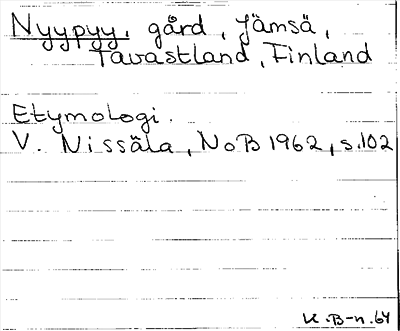 Nyypyy, gård, Jämsä,
Tavastland, Finland
Etymologi.
V. Nissäla, NoB 1962, s.102
K.B-n.64